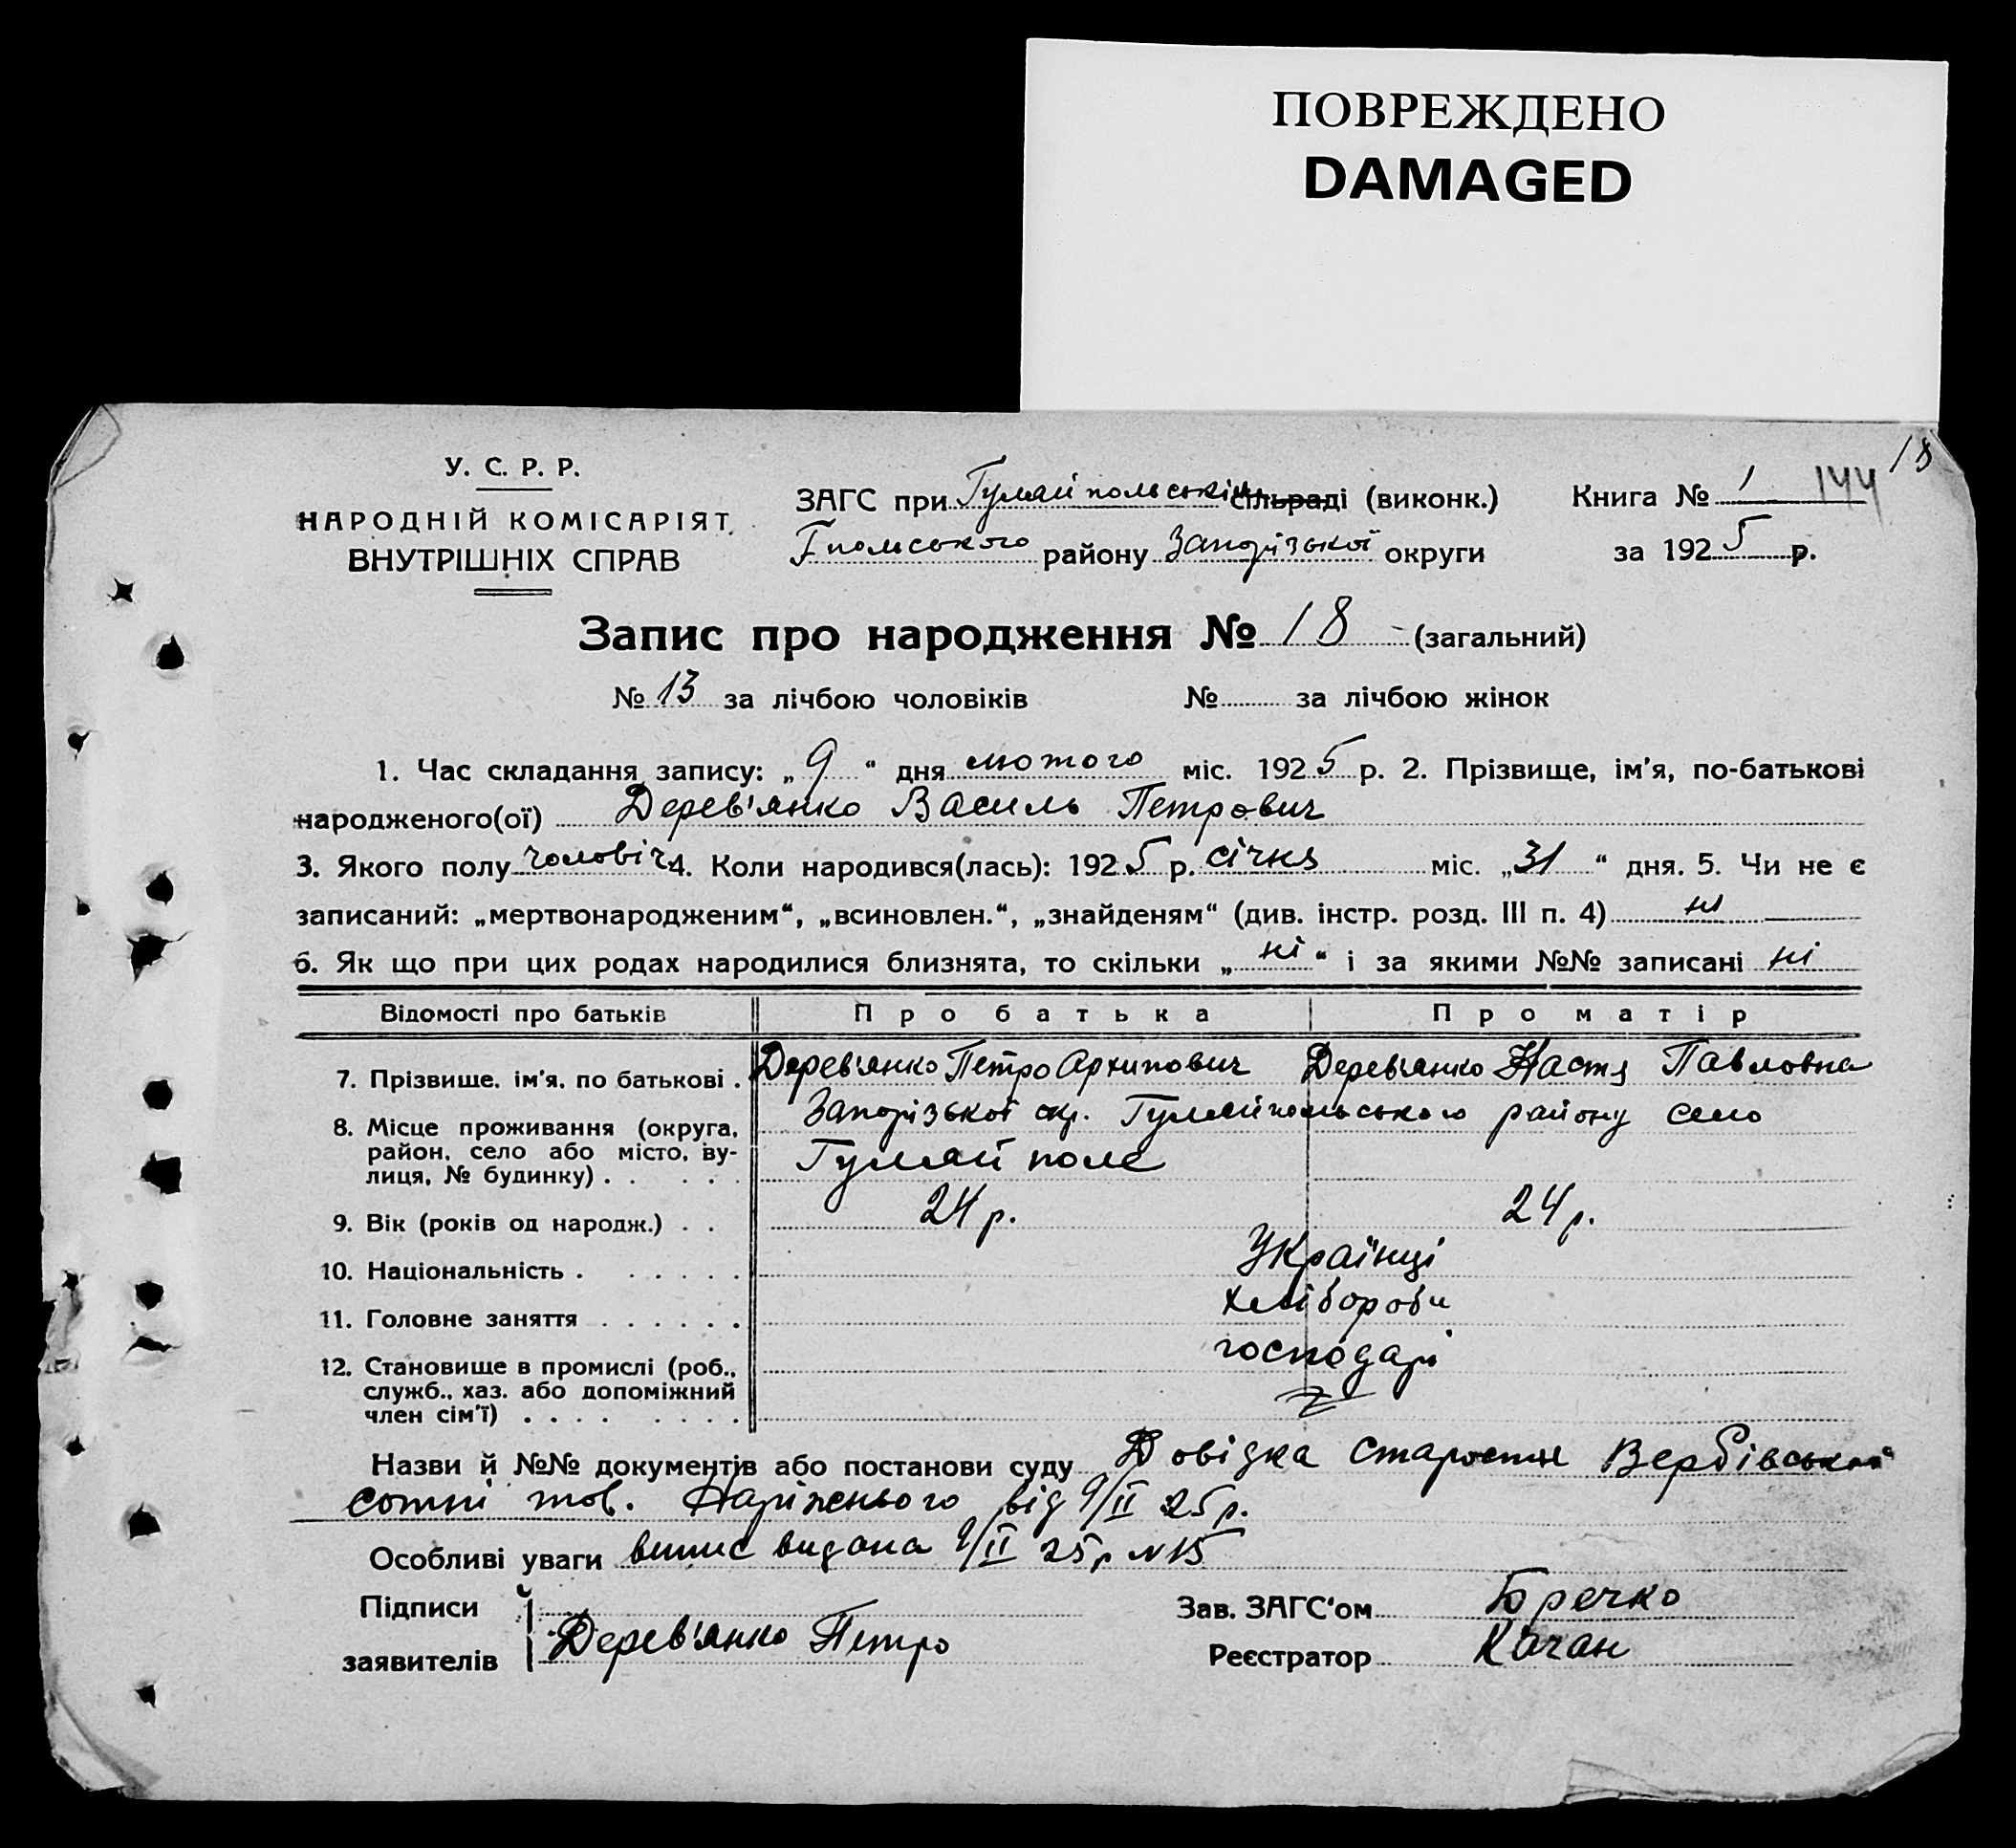 ПОВРЕЖДЕНО
DAMAGED
18
У. С. Р. Р.
НАРОДНІЙ КОМІСАРІЯТ
ВНУТРІШНІХ СПРАВ
ЗАГС при Гуляйпольськім сільраді (виконк.)
Книга № 1 144
Гпольського району Запорізької округи
за 1925 р.
Запис про народження № 18 - (загальний)
№ 13 за лічбою чоловіків № за лічбою жінок
1. Час складання запису: „9“ дня лютого міс. 1925 р. 2. Прізвище, ім'я, по-батькові
народженого(ої) Дерев'янко Василь Петрович
3. Якого полу чоловіч. 4. Коли народився(лась): 1925 р. січня міс. „31“ дня. 5. Чи не є
записаний: „мертвонародженим“, „всиновлен.“, „знайденям“ (див. інстр. розд. III п. 4) ні
6. Як що при цих родах народилися близнята, то скільки „ні“ і за якими №№ записані ні
Відомості про батьків Про батька Про матір
7. Прізвище, ім'я, по батькові . Дерев'янко Петро Архипович Дерев'янко Настя Павловна
8. Місце проживання (округа, Запорізької окр. Гуляйпольського району село
район, село або місто, ву-
лиця, № будинку) . . . . . Гуляй поле
9. Вік (років од народж.) . . 24 р. 24 р.
10. Національність . . . . . . Українці
11. Головне заняття . . . . . . хлібороби
12. Становище в промислі (роб., господарі
служб., хаз. або допоміжний
член сім'ї) . . . . . . . .
Назви й №№ документів або постанови суду Довідка старости Вербівської
сотні тов. Наріжнього від 9/II 25 р.
Особливі уваги випис видана 9/II 25 р N 15
Підписи
Зав. ЗАГС'ом Бречко
заявителів Дерев'янко Петро
Реєстратор Качан